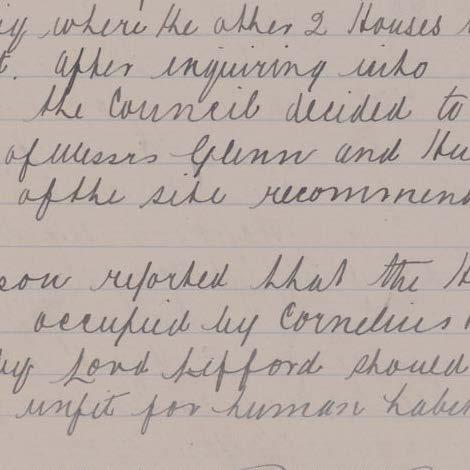 where the other 2 Houses
After inquiring into
the Council decided to
of Messrs Glenn and Hu
of the site recommen
son reported that the H
occupied by Cornelius
by Lord Lifford should
unfit for human habi